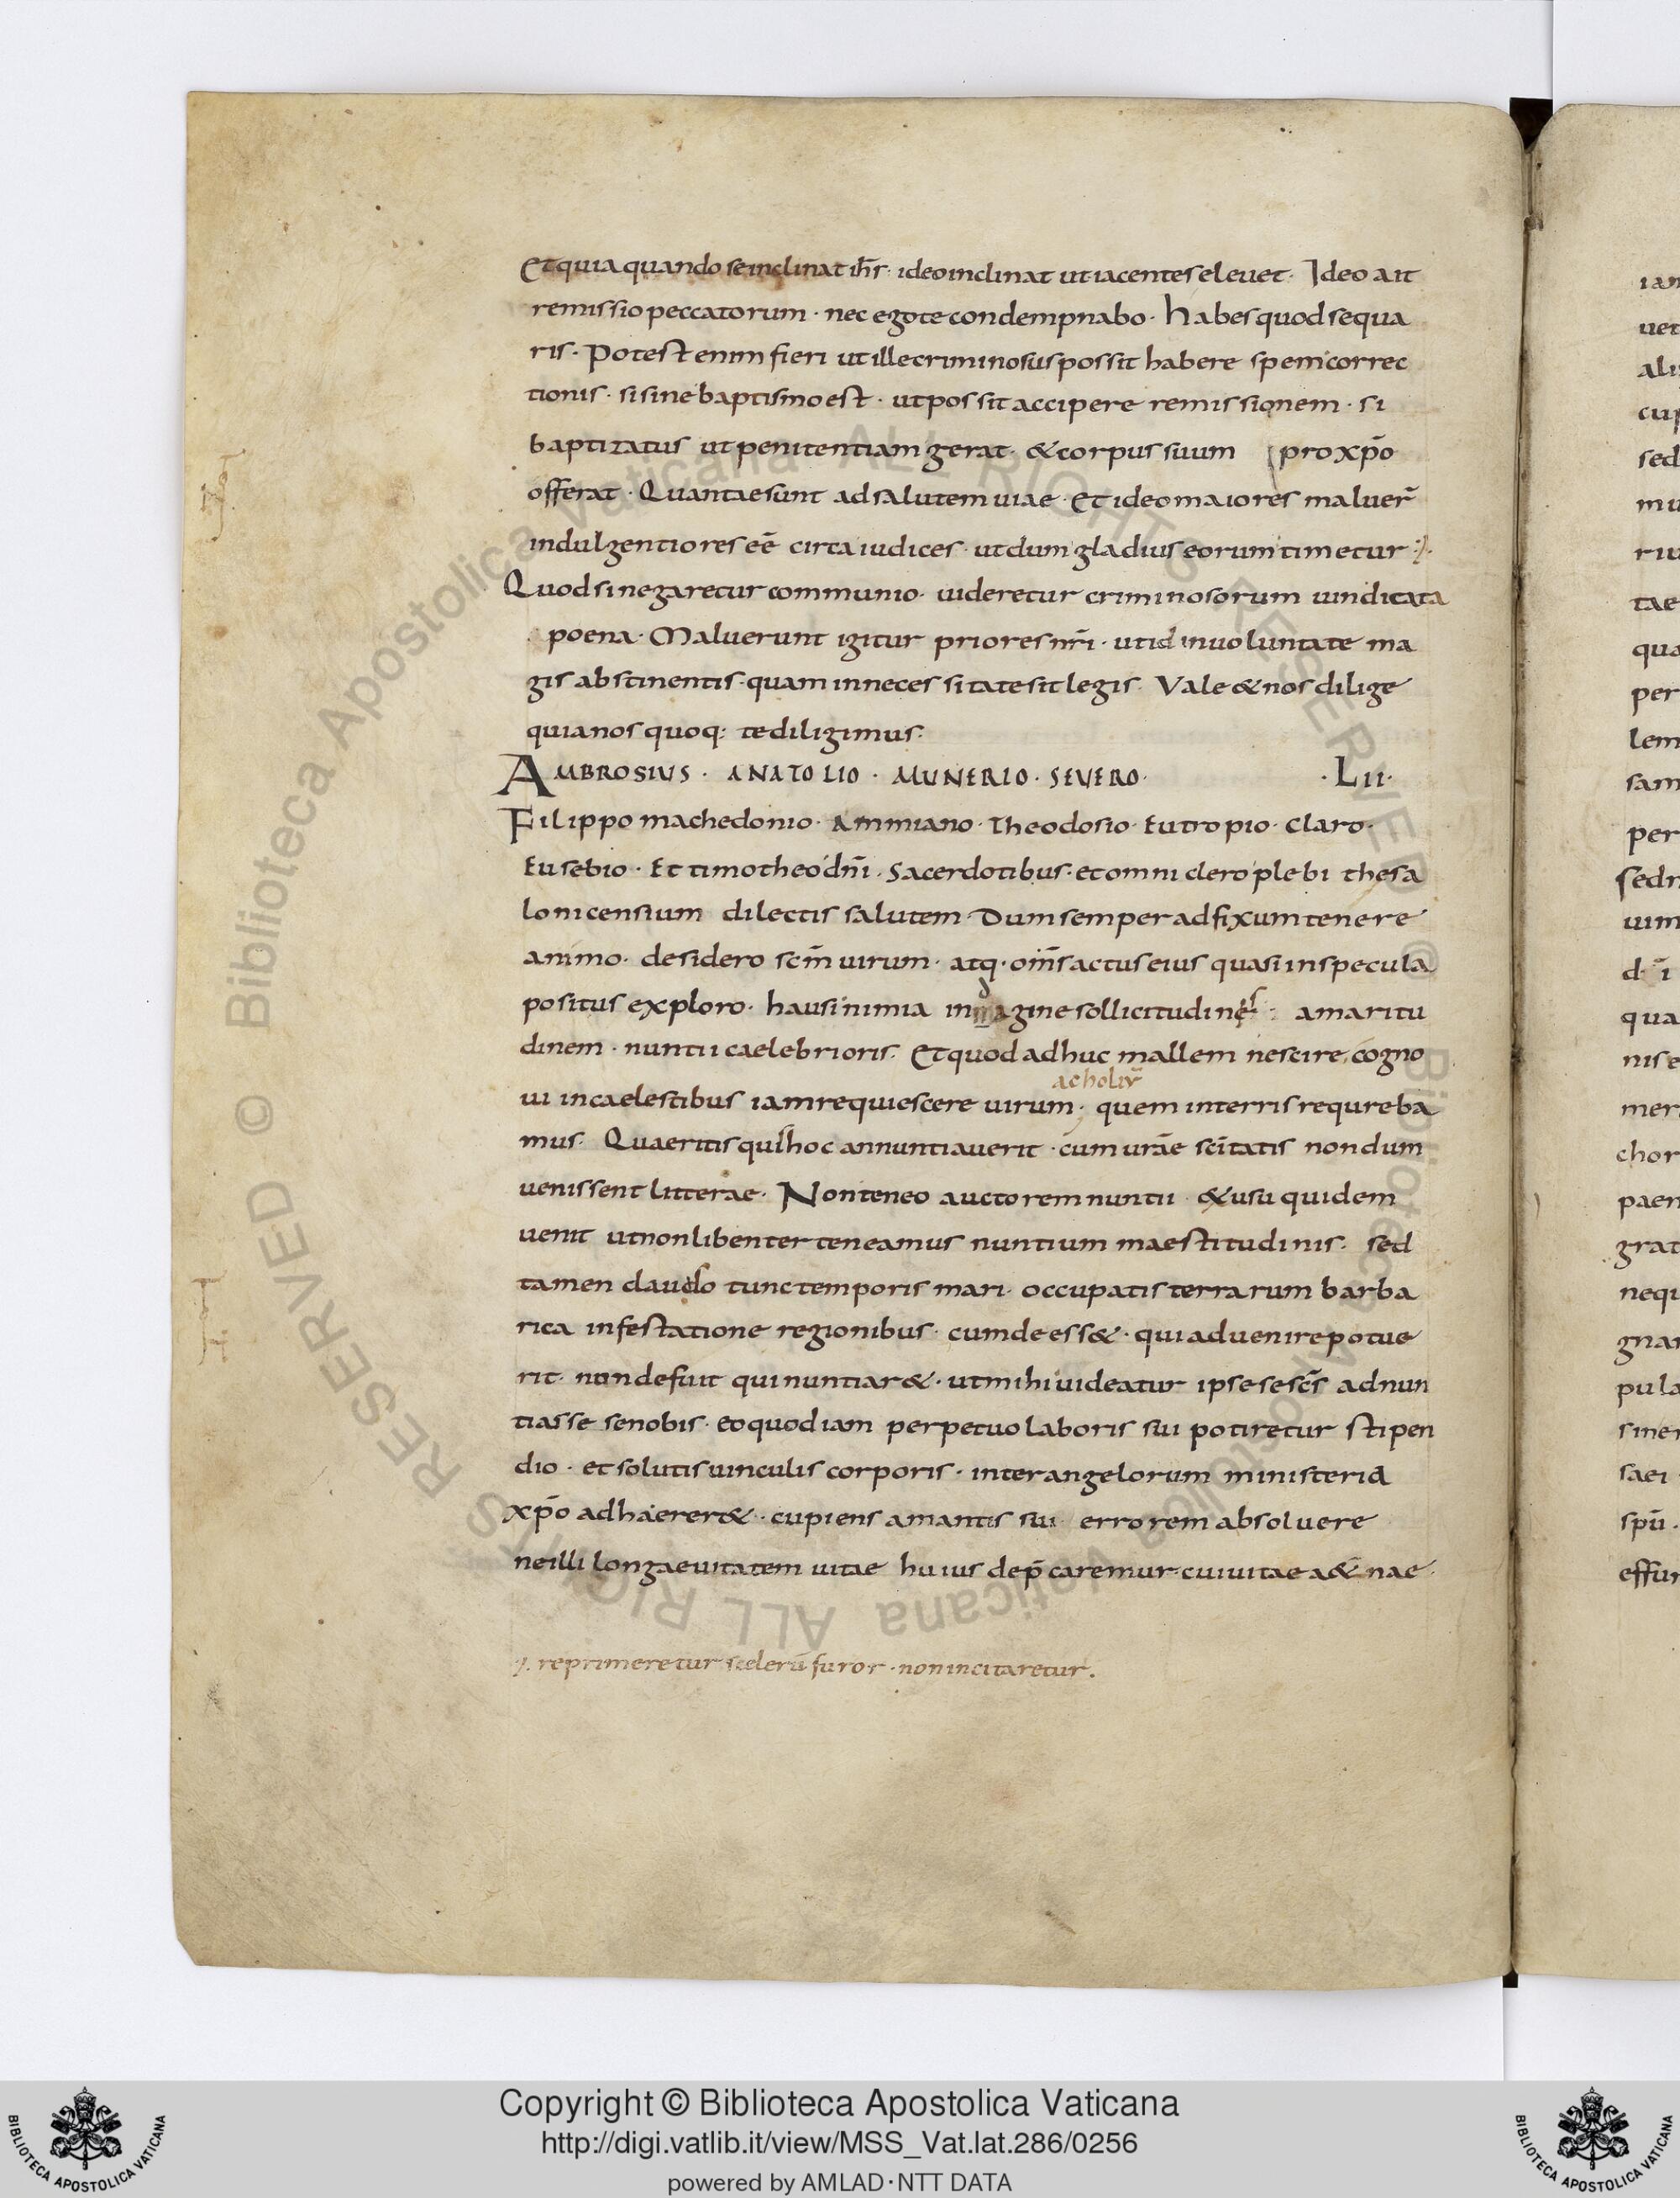 Et quia quando se inclinat ihs̄ · ideo inclinat ut iacentes eleuet · Ideo ait
remissio peccatorum · nec ego te condempnabo · habes quod sequa
ris · Potest enim fieri ut ille criminosus possit habere spem correc
tionis · si sine baptismo est · ut possit accipere remissionem · si
baptizatus ut penitentiam gerat · & corpus suum pro xp̄o
offerat · Quantae sunt ad salutem uiae · Et ideo maiores maluer̄
indulgentiores eē circa iudices · ut dum gladius eorum timetur
Quod si negaretur communio · uideretur criminosorum uindicata
poena · Maluerunt igitur priores nr̄i · ut id in uoluntate ma
gis abstinentis · quam in necessitate sit legis · Vale & nos dilige
quia nos quoq: te diligimus:
AMBROSIUS · ANATOLIO · MUNERIO · SEVERO · · LII ·
Filippo machedonio · Ammiano · Theodosio · Eutropio · Claro ·
Eusebio · Et timotheo dn̄i · Sacerdotibus · et omni clero plebi thesa
lonicensium dilectis salutem · Dum semper adfixum tenere
animo · desidero scm̄ uirum · atq · om̄s actus eius quasi in specula
positus exploro · hausi nimia indagine sollicitudines amaritu
dinem · nuntii caelebrioris · Et quod adhuc mallem nescire, cogno
acholiū
ui in caelestibus iam requiescere uirum · quem in terris requreba
mus · Quaeritis quis hoc annuntiauerit · cum urāe scītatis nondum
uenissent litterae · Non teneo auctorem nuntii & usu quidem
uenit ut non libenter teneamus nuntium maestitudinis · sed
tamen clauso tunc temporis mari · occupatis terrarum barba
rica infestatione regionibus · cum deess& · qui aduenire potue
rit · non defuit qui nuntiar& · ut mihi uideatur ipse se scs̄ adnun
tiasse se nobis · eo quod iam perpetuo laboris sui potiretur stipen
dio · et solutis uinculis corporis · inter angelorum ministeria
xp̄o adhaerer& · cupiens amantis sui errorem absoluere
ne illi longaeuitatem uitae huius dep̄caremur · cui uitae a&nae ·
reprimeretur scelerū furor · non incitaretur.
Copyright © Biblioteca Apostolica Vaticana
http://digi.vatlib.it/view/MSS_Vat.lat.286/0256
powered by AMLAD · NTT DATA